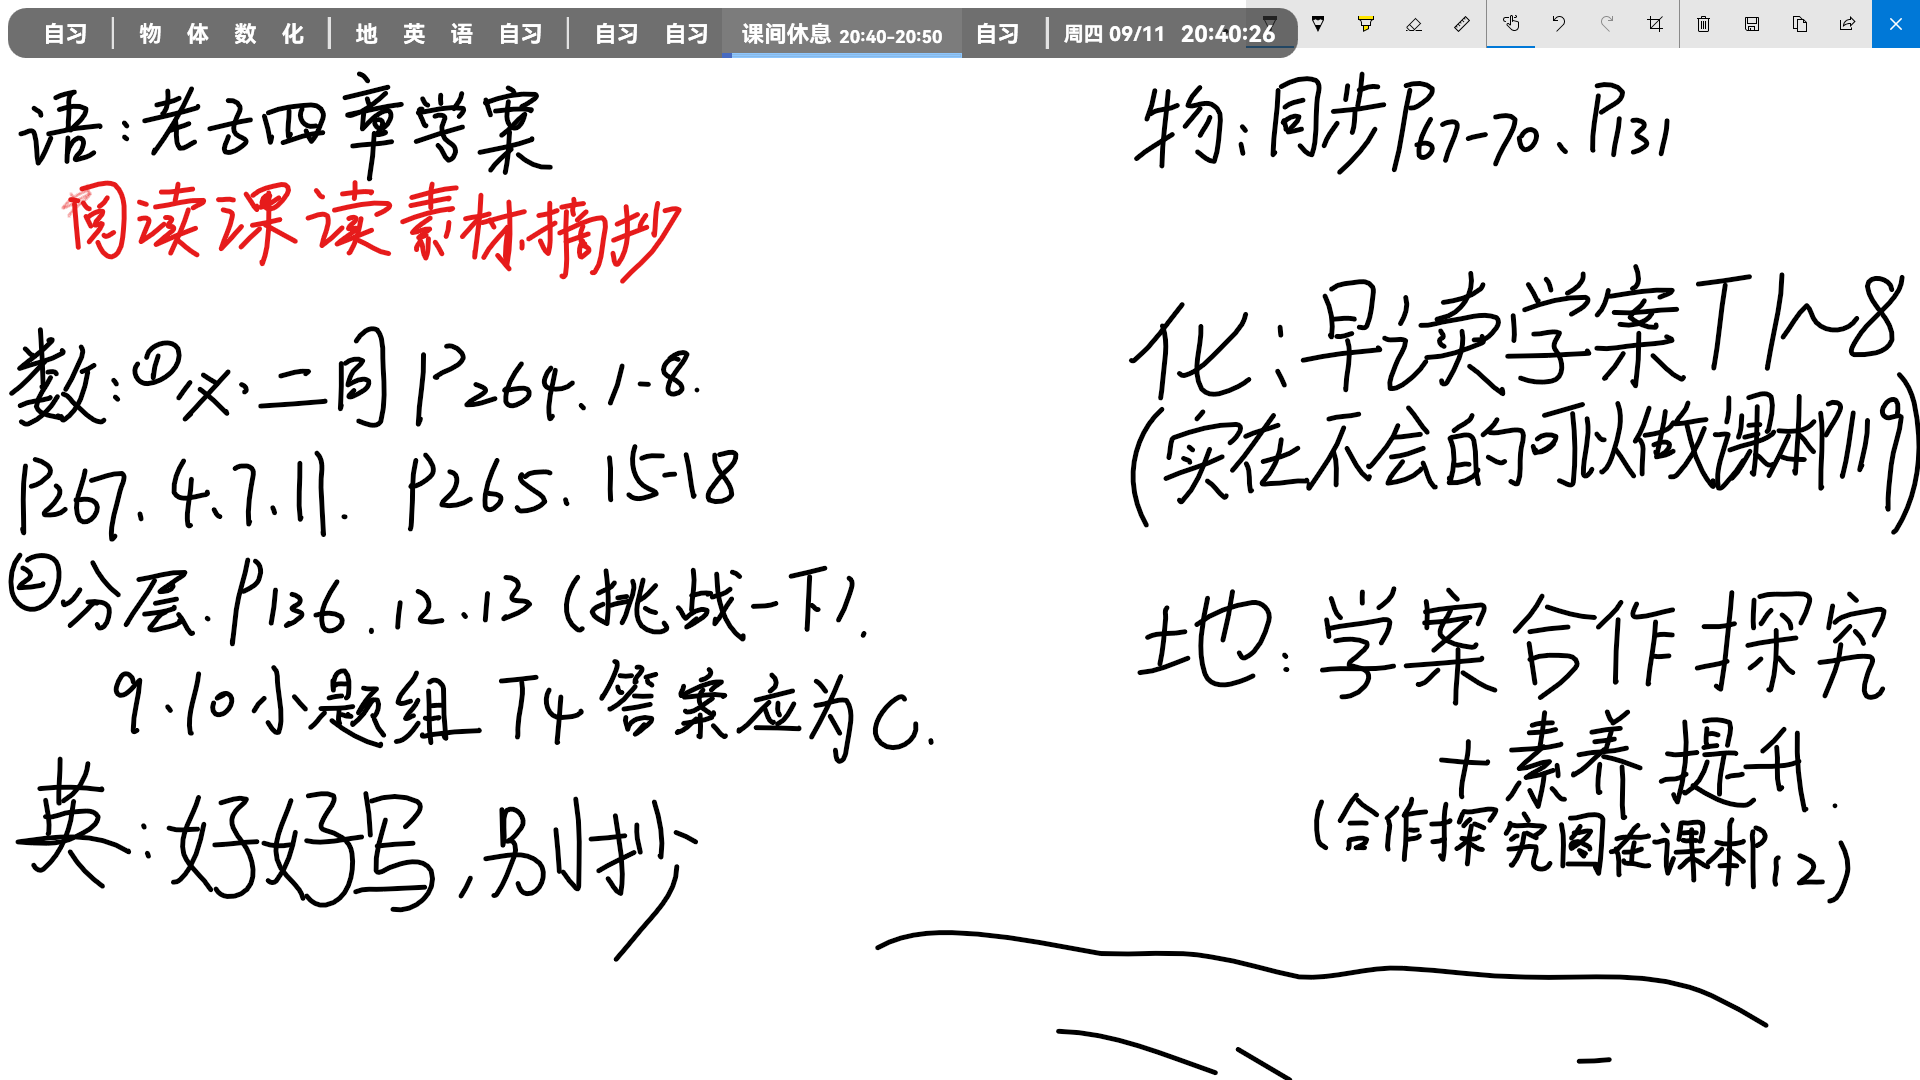 自习 | 物 体 数 化 | 地 英 语 自习 | 自习 自习 课间休息 20:40-20:50 自习 | 周四 09/11 20:40:26
语:老子四章学案
阅读课读素材摘抄
数:①必二同P264.1-8.
P267.4.7.11. P265.15-18
②分层.P136.12.13(挑战一下).
9.10小题组T4答案应为C.
英:好好写,别抄
物:同步P67-70、P131
化:早读学案T1~8
(实在不会的可以做课本P119)
地:学案合作探究
+素养提升.
(合作探究图在课本P12)